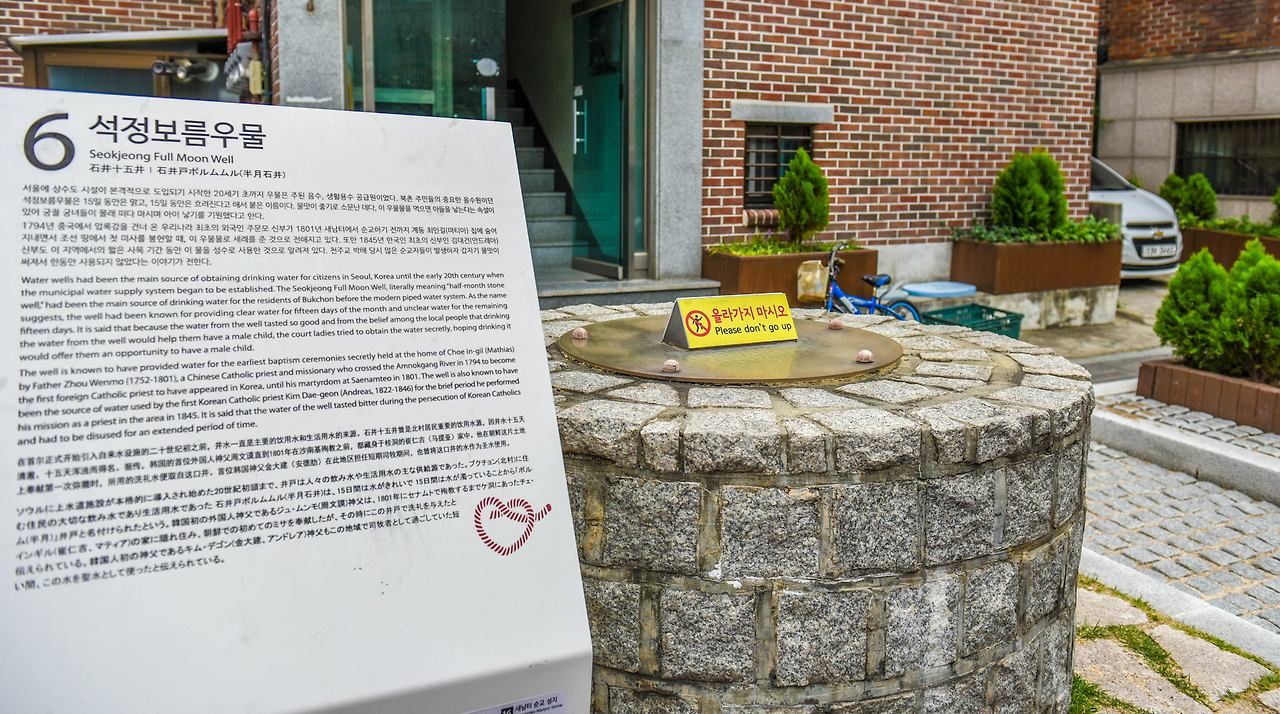 6
석정보름우물
Seokjeong Full Moon Well
石井十五井 | 石井戸ボルムムル(半月石井)
서울에 상수도 시설이 본격적으로 도입되기 시작한 20세기 초까지 우물은 주된 음수, 생활용수 공급원이었다. 북촌 주민들의 중요한 음수원이던
석정보름우물은 15일 동안은 맑고, 15일 동안은 흐려진다고 해서 붙은 이름이다. 물맛이 좋기로 소문난 데다, 이 우물물을 먹으면 아들을 낳는다는 속설이
있어 궁궐 궁녀들이 몰래 떠다 마시며 아이 낳기를 기원했다고 한다.
1794년 중국에서 압록강을 건너 온 우리나라 최초의 외국인 주문모 신부가 1801년 새남터에서 순교하기 전까지 계동 최인길(마티아) 집에 숨어
지내면서 조선 땅에서 첫 미사를 봉헌할 때, 이 우물물로 세례를 준 것으로 전해지고 있다. 또한 1845년 한국인 최초의 신부인 김대건(안드레아)
신부도 이 지역에서의 짧은 사목 기간 동안 이 물을 성수로 사용한 것으로 알려져 있다. 천주교 박해 당시 많은 순교자들이 발생하자 갑자기 물맛이
써져서 한동안 사용되지 않았다는 이야기가 전한다.
Water wells had been the main source of obtaining drinking water for citizens in Seoul, Korea until the early 20th century when
the municipal water supply system began to be established. The Seokjeong Full Moon Well, literally meaning "half-month stone
well," had been the main source of drinking water for the residents of Bukchon before the modern piped water system. As the name
suggests, the well had been known for providing clear water for fifteen days of the month and unclear water for the remaining
fifteen days. It is said that because the water from the well tasted so good and from the belief among the local people that drinking
the water from the well would help them have a male child, the court ladies tried to obtain the water secretly, hoping drinking it
would offer them an opportunity to have a male child.
The well is known to have provided water for the earliest baptism ceremonies secretly held at the home of Choe In-gil (Mathias)
by Father Zhou Wenmo (1752-1801), a Chinese Catholic priest and missionary who crossed the Amnokgang River in 1794 to become
the first foreign Catholic priest to have appeared in Korea, until his martyrdom at Saenamteo in 1801. The well is also known to have
been the source of water used by the first Korean Catholic priest Kim Dae-geon (Andreas, 1822-1846) for the brief period he performed
his mission as a priest in the area in 1845. It is said that the water of the well tasted bitter during the persecution of Korean Catholics
and had to be disused for an extended period of time.
在首尔正式开始引入自来水设施的二十世纪初之前，井水一直是主要的饮用水和生活用水的来源。石井十五井曾是北村居民重要的饮用水源，因井水十五天
清澈、十五天浑浊而得名。据传，韩国的首位外国人神父周文谟直到1801年在沙南基殉教之前，都藏身于桂洞的崔仁吉（马提亚）家中，他在朝鲜这片土地
上奉献第一次弥撒时，所用的洗礼水便取自这口井。首位韩国神父金大建（安德肋）在此地区担任短期司牧期间，也曾将这口井的水作为圣水使用。
ソウルに上水道施設が本格的に導入され始めた20世紀初頭まで、井戸は人々の飲み水や生活用水の主な供給源であった。ブクチョン(北村)に住
む住民の大切な飲み水であり生活用水であった 石井戸ボルムムル(半月石井)は、15日間は水がきれいで 15日間は水が濁っていることから「ボル
ム(半月)」井戸と名付けられたという。韓国初の外国人神父であるジュ・ムンモ(周文謨)神父は、1801年にセナムトで殉教するまでケ洞にあったチェ・
インギル(崔仁吉、マティア)の家に隠れ住み、朝鮮での初めてのミサを奉献したが、その時にこの井戸で洗礼を与えたと
伝えられている。韓国人初の神父であるキム・デゴン(金大建、アンドレア)神父もこの地域で司牧者として過ごしていた短
い間、この水を聖水として使ったと伝えられている。
새남터 순교 성지
올라가지 마시오
Please don't go up